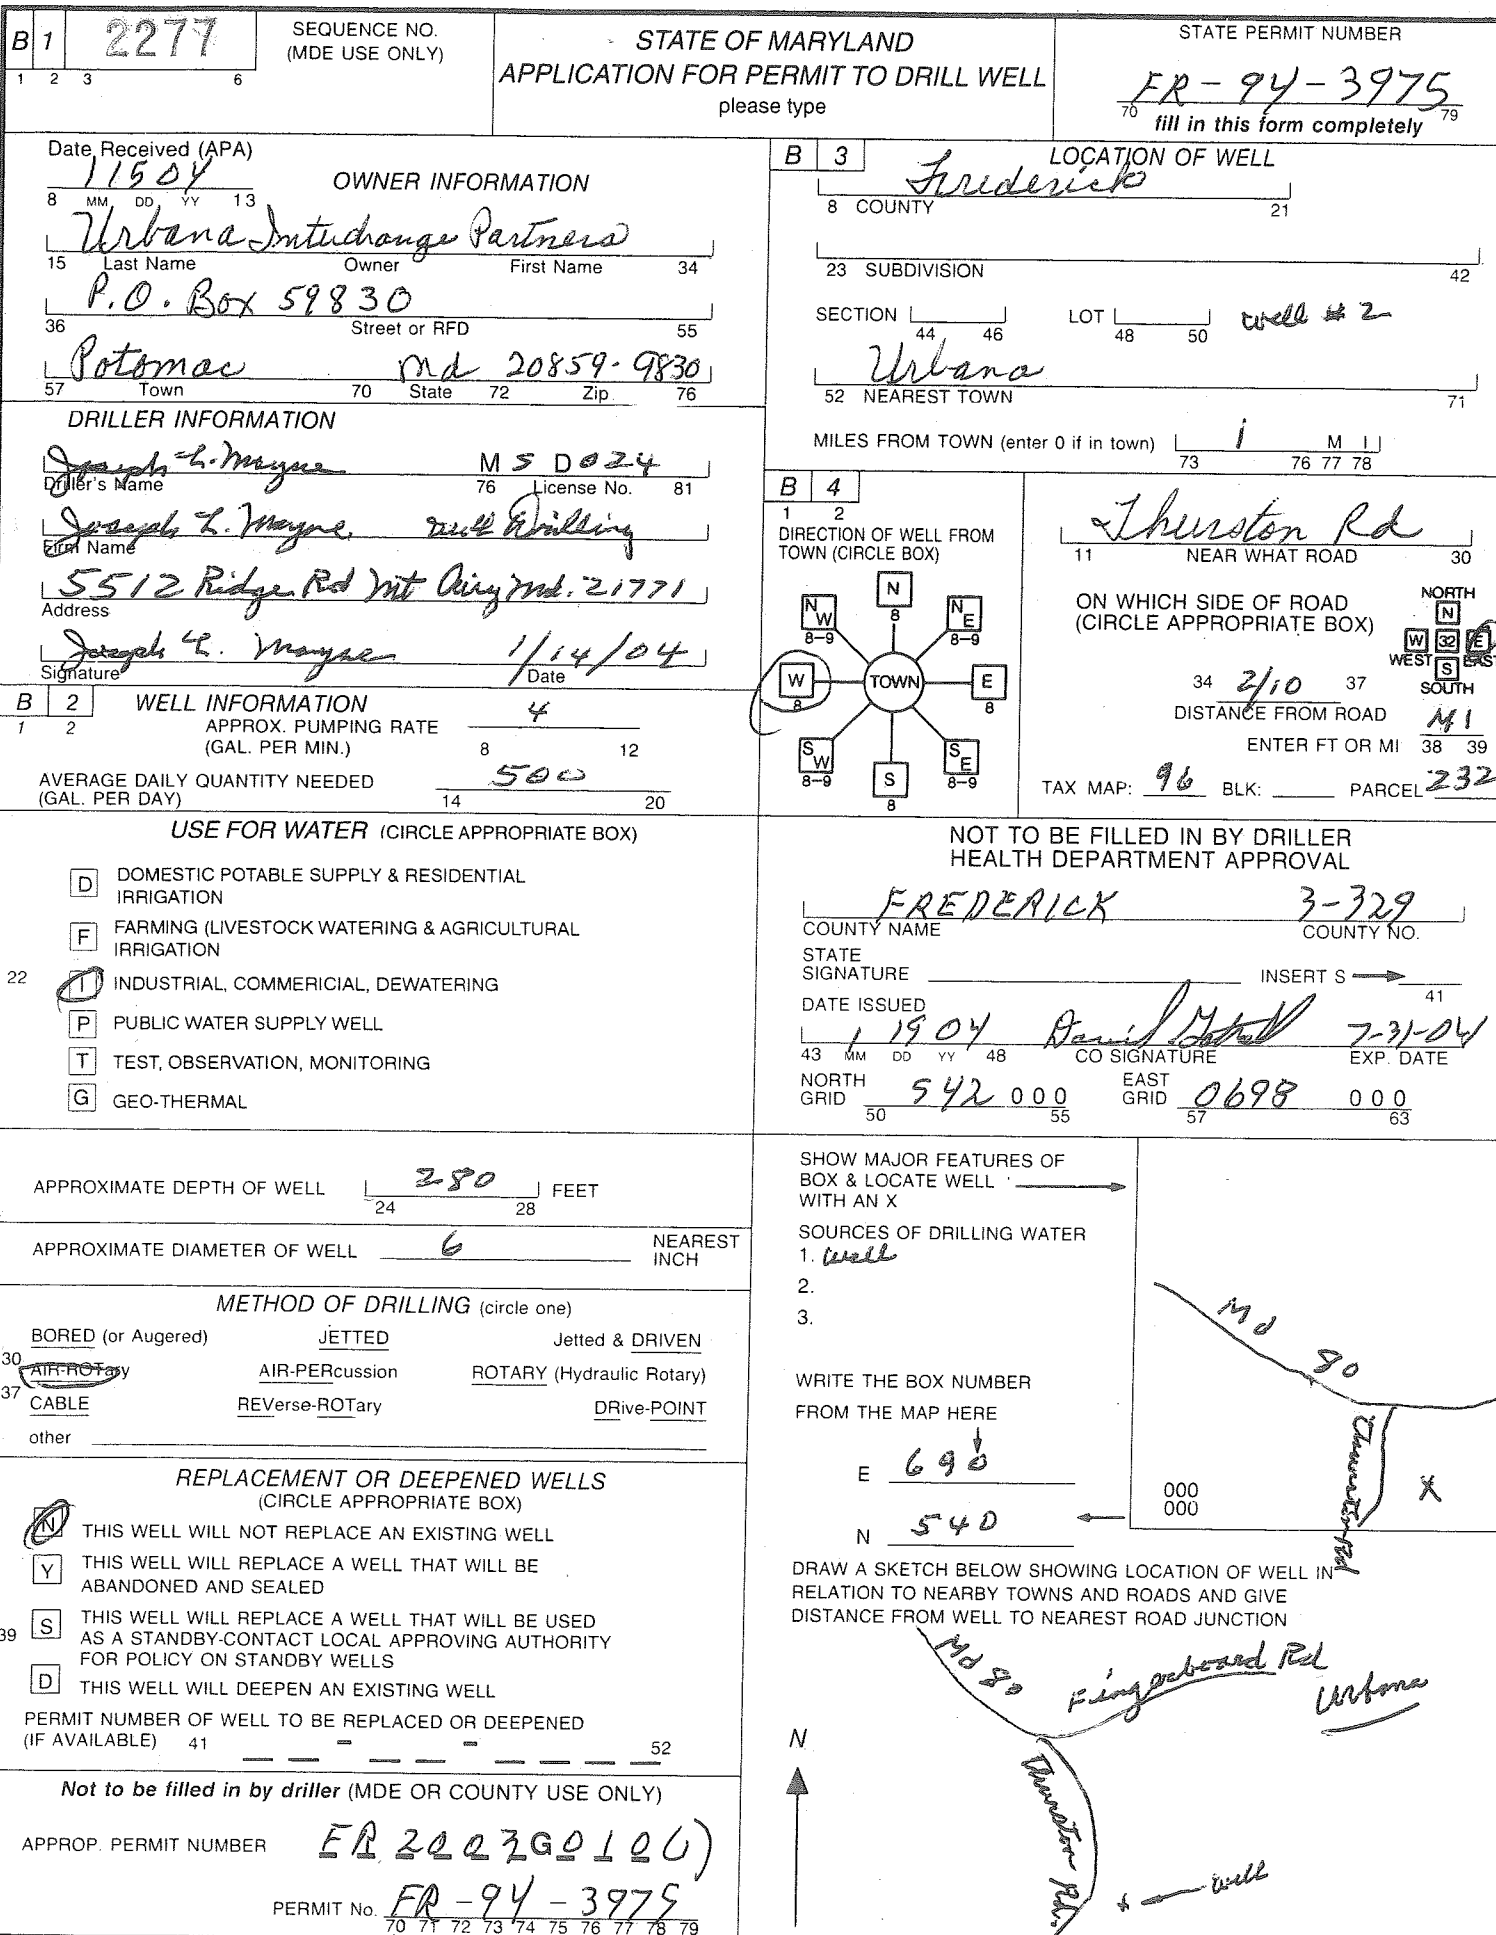 B 1 2277 SEQUENCE NO. (MDE USE ONLY)
1 2 3 6
STATE OF MARYLAND
APPLICATION FOR PERMIT TO DRILL WELL
please type
STATE PERMIT NUMBER
FR-94-3975
70 79
fill in this form completely
Date Received (APA)
11504
8 MM DD YY 13
OWNER INFORMATION
Urbana Interchange Partners
15 Last Name Owner First Name 34
P.O. Box 59830
36 Street or RFD 55
Potomac Md 20859-9830
57 Town 70 State 72 Zip 76
DRILLER INFORMATION
Joseph L. Mayne M S D 024
Driller's Name 76 License No. 81
Joseph L. Mayne Well Drilling
Firm Name
5512 Ridge Rd Mt Airy Md. 21771
Address
Joseph L. Mayne 1/14/04
Signature Date
B 2 WELL INFORMATION
1 2
APPROX. PUMPING RATE (GAL. PER MIN.) 4
8 12
AVERAGE DAILY QUANTITY NEEDED (GAL. PER DAY) 500
14 20
USE FOR WATER (CIRCLE APPROPRIATE BOX)
D DOMESTIC POTABLE SUPPLY & RESIDENTIAL
IRRIGATION
F FARMING (LIVESTOCK WATERING & AGRICULTURAL
IRRIGATION
22 I INDUSTRIAL, COMMERICIAL, DEWATERING
P PUBLIC WATER SUPPLY WELL
T TEST, OBSERVATION, MONITORING
G GEO-THERMAL
APPROXIMATE DEPTH OF WELL 280 FEET
24 28
APPROXIMATE DIAMETER OF WELL 6 NEAREST INCH
METHOD OF DRILLING (circle one)
BORED (or Augered) JETTED Jetted & DRIVEN
30 AIR-ROTary AIR-PERcussion ROTARY (Hydraulic Rotary)
37 CABLE REVerse-ROTary DRive-POINT
other
REPLACEMENT OR DEEPENED WELLS
(CIRCLE APPROPRIATE BOX)
N THIS WELL WILL NOT REPLACE AN EXISTING WELL
Y THIS WELL WILL REPLACE A WELL THAT WILL BE
ABANDONED AND SEALED
39 S THIS WELL WILL REPLACE A WELL THAT WILL BE USED
AS A STANDBY-CONTACT LOCAL APPROVING AUTHORITY
FOR POLICY ON STANDBY WELLS
D THIS WELL WILL DEEPEN AN EXISTING WELL
PERMIT NUMBER OF WELL TO BE REPLACED OR DEEPENED
(IF AVAILABLE) 41 - - 52
Not to be filled in by driller (MDE OR COUNTY USE ONLY)
APPROP. PERMIT NUMBER
PERMIT No. FR-94-3975
70 71 72 73 74 75 76 77 78 79
B 3 LOCATION OF WELL
Frederick
8 COUNTY 21
23 SUBDIVISION 42
SECTION LOT well # 2
44 46 48 50
Urbana
52 NEAREST TOWN 71
MILES FROM TOWN (enter 0 if in town) 1 M I
73 76 77 78
B 4
1 2
DIRECTION OF WELL FROM
TOWN (CIRCLE BOX)
N
8
NW NE
8-9 8-9
W TOWN E
8 8
SW SE
8-9 8-9
S
8
Thurston Rd
11 NEAR WHAT ROAD 30
ON WHICH SIDE OF ROAD
(CIRCLE APPROPRIATE BOX)
NORTH
N
W 32 E
WEST EAST
S
SOUTH
34 2/10 37
DISTANCE FROM ROAD MI
ENTER FT OR MI 38 39
TAX MAP: 96 BLK: PARCEL 232
NOT TO BE FILLED IN BY DRILLER
HEALTH DEPARTMENT APPROVAL
FREDERICK 3-329
COUNTY NAME COUNTY NO.
STATE
SIGNATURE INSERT S
41
DATE ISSUED
1 19 04 David 7-31-04
43 MM DD YY 48 CO SIGNATURE EXP. DATE
NORTH GRID 542 000 EAST GRID 0698 000
50 55 57 63
SHOW MAJOR FEATURES OF
BOX & LOCATE WELL
WITH AN X
SOURCES OF DRILLING WATER
1. Well
2.
3.
WRITE THE BOX NUMBER
FROM THE MAP HERE
E 690
N 540
000
000
Md 80
Thurston Rd
X
DRAW A SKETCH BELOW SHOWING LOCATION OF WELL IN
RELATION TO NEARBY TOWNS AND ROADS AND GIVE
DISTANCE FROM WELL TO NEAREST ROAD JUNCTION
Md 80
Fingerboard Rd
Urbana
N
Thurston Rd.
well